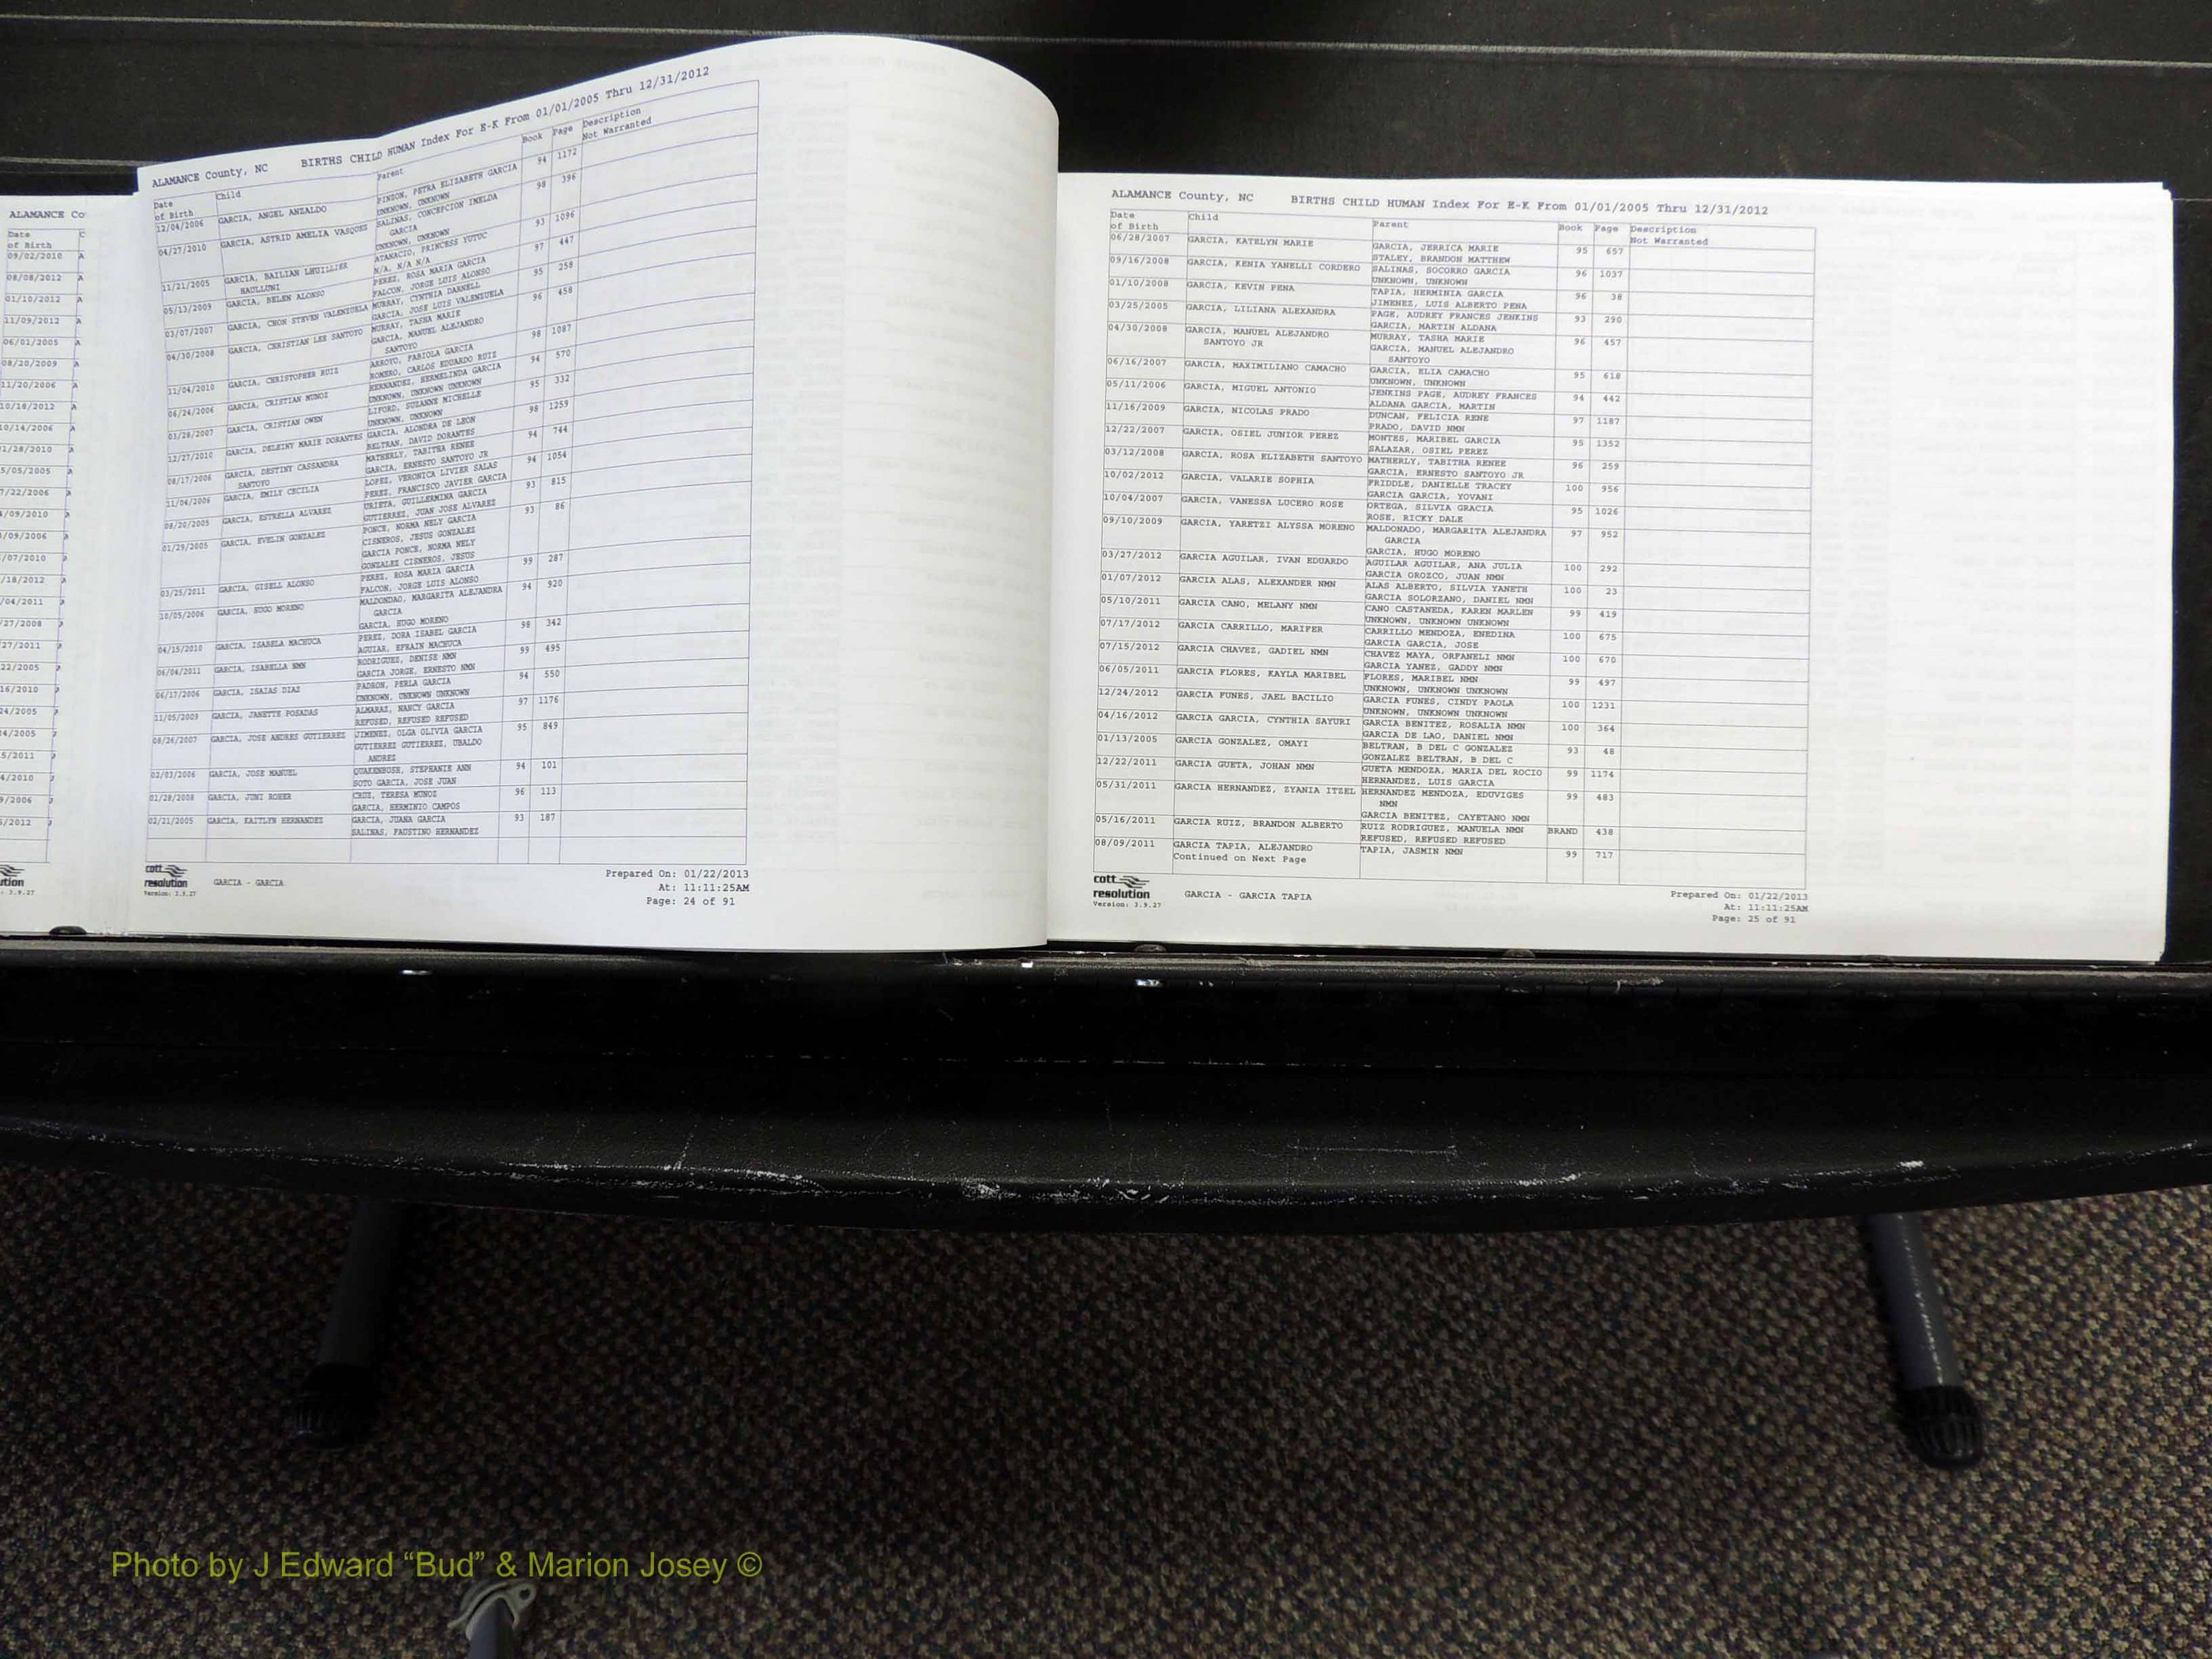 ALAMANCE Co
Date
of Birth
09/02/2010 A
08/08/2012 A
01/10/2012 A
11/09/2012 A
06/01/2005 A
08/20/2009 A
11/20/2006 A
10/18/2012 A
0/14/2006 A
1/28/2010
5/05/2005
7/22/2006
/09/2010
/09/2006
/07/2010
/18/2012
/04/2011
27/2008
27/2011
22/2005
16/2010
24/2005
4/2005
5/2011
4/2010
9/2006
/2012
ution
: 3.9.27
ALAMANCE County, NC BIRTHS CHILD HUMAN Index For E-K From 01/01/2005 Thru 12/31/2012
Date of Birth Child Parent Book Page Description Not Warranted
12/04/2006 GARCIA, ANGEL ANZALDO PINZON, PETRA ELIZABETH GARCIA 94 1172
UNKNOWN, UNKNOWN
04/27/2010 GARCIA, ASTRID AMELIA VASQUEZ SALINAS, CONCEPCION IMELDA 98 396
GARCIA
UNKNOWN, UNKNOWN
11/21/2005 GARCIA, BAILIAN LHUILLIER ATANACIO, PRINCESS YUTUC 93 1096
HAULLUNI N/A, N/A N/A
05/13/2009 GARCIA, BELEN ALONSO PEREZ, ROSA MARIA GARCIA 97 447
FALCON, JORGE LUIS ALONSO
03/07/2007 GARCIA, CHON STEVEN VALENZUELA MURRAY, CYNTHIA DARNELL 95 258
GARCIA, JOSE LUIS VALENZUELA
04/30/2008 GARCIA, CHRISTIAN LEE SANTOYO MURRAY, TASHA MARIE 96 458
GARCIA, MANUEL ALEJANDRO
SANTOYO
11/04/2010 GARCIA, CHRISTOPHER RUIZ ARROYO, FABIOLA GARCIA 98 1087
ROMERO, CARLOS EDUARDO RUIZ
06/24/2006 GARCIA, CRISTIAN MUNOZ HERNANDEZ, HERMELINDA GARCIA 94 570
UNKNOWN, UNKNOWN UNKNOWN
03/28/2007 GARCIA, CRISTIAN OWEN LIFORD, SUZANNE MICHELLE 95 332
UNKNOWN, UNKNOWN
12/27/2010 GARCIA, DELEINY MARIE DORANTES GARCIA, ALONDRA DE LEON 98 1259
BELTRAN, DAVID DORANTES
08/17/2006 GARCIA, DESTINY CASSANDRA MATHERLY, TABITHA RENEE 94 744
SANTOYO GARCIA, ERNESTO SANTOYO JR
11/04/2006 GARCIA, EMILY CECILIA LOPEZ, VERONICA LIVIER SALAS 94 1054
PEREZ, FRANCISCO JAVIER GARCIA
08/20/2005 GARCIA, ESTRELLA ALVAREZ URIETA, GUILLERMINA GARCIA 93 815
GUTIERREZ, JUAN JOSE ALVAREZ
01/29/2005 GARCIA, EVELIN GONZALEZ PONCE, NORMA NELY GARCIA 93 86
CISNEROS, JESUS GONZALEZ
GARCIA PONCE, NORMA NELY
GONZALEZ CISNEROS, JESUS
03/25/2011 GARCIA, GISELL ALONSO PEREZ, ROSA MARIA GARCIA 99 287
FALCON, JORGE LUIS ALONSO
10/05/2006 GARCIA, HUGO MORENO MALDONDAO, MARGARITA ALEJANDRA 94 920
GARCIA
GARCIA, HUGO MORENO
04/15/2010 GARCIA, ISABELA MACHUCA PEREZ, DORA ISABEL GARCIA 98 342
AGUIAR, EFRAIN MACHUCA
06/04/2011 GARCIA, ISABELLA NMN RODRIGUEZ, DENISE NMN 99 495
GARCIA JORGE, ERNESTO NMN
06/17/2006 GARCIA, ISAIAS DIAZ PADRON, PERLA GARCIA 94 550
UNKNOWN, UNKNOWN UNKNOWN
11/05/2009 GARCIA, JANETTE POSADAS ALMARAZ, NANCY GARCIA 97 1176
REFUSED, REFUSED REFUSED
08/26/2007 GARCIA, JOSE ANDRES GUTIERREZ JIMENEZ, OLGA OLIVIA GARCIA 95 849
GUTIERREZ GUTIERREZ, UBALDO
ANDREZ
02/03/2006 GARCIA, JOSE MANUEL QUAKENBUSH, STEPHANIE ANN 94 101
SOTO GARCIA, JOSE JUAN
01/28/2008 GARCIA, JUNI ROHER CRUZ, TERESA MUNOZ 96 113
GARCIA, HERMINIO CAMPOS
02/21/2005 GARCIA, KAITLYN HERNANDEZ GARCIA, JUANA GARCIA 93 187
SALINAS, FAUSTINO HERNANDEZ
cott
resolution
Version: 3.9.27
GARCIA - GARCIA
Prepared On: 01/22/2013
At: 11:11:25AM
Page: 24 of 91
ALAMANCE County, NC BIRTHS CHILD HUMAN Index For E-K From 01/01/2005 Thru 12/31/2012
Date of Birth Child Parent Book Page Description Not Warranted
06/28/2007 GARCIA, KATELYN MARIE GARCIA, JERRICA MARIE 95 657
STALEY, BRANDON MATTHEW
09/16/2008 GARCIA, KENIA YANELLI CORDERO SALINAS, SOCORRO GARCIA 96 1037
UNKNOWN, UNKNOWN
01/10/2008 GARCIA, KEVIN PENA TAPIA, HERMINIA GARCIA 96 38
JIMENEZ, LUIS ALBERTO PENA
03/25/2005 GARCIA, LILIANA ALEXANDRA PAGE, AUDREY FRANCES JENKINS 93 290
GARCIA, MARTIN ALDANA
04/30/2008 GARCIA, MANUEL ALEJANDRO MURRAY, TASHA MARIE 96 457
SANTOYO JR GARCIA, MANUEL ALEJANDRO
SANTOYO
06/16/2007 GARCIA, MAXIMILIANO CAMACHO GARCIA, ELIA CAMACHO 95 618
UNKNOWN, UNKNOWN
05/11/2006 GARCIA, MIGUEL ANTONIO JENKINS PAGE, AUDREY FRANCES 94 442
ALDANA GARCIA, MARTIN
11/16/2009 GARCIA, NICOLAS PRADO DUNCAN, FELICIA RENE 97 1187
PRADO, DAVID NMN
12/22/2007 GARCIA, OSIEL JUNIOR PEREZ MONTES, MARIBEL GARCIA 95 1352
SALAZAR, OSIEL PEREZ
03/12/2008 GARCIA, ROSA ELIZABETH SANTOYO MATHERLY, TABITHA RENEE 96 259
GARCIA, ERNESTO SANTOYO JR
10/02/2012 GARCIA, VALARIE SOPHIA FRIDDLE, DANIELLE TRACEY 100 956
GARCIA GARCIA, YOVANI
10/04/2007 GARCIA, VANESSA LUCERO ROSE ORTEGA, SILVIA GRACIA 95 1026
ROSE, RICKY DALE
09/10/2009 GARCIA, YARETZI ALYSSA MORENO MALDONADO, MARGARITA ALEJANDRA 97 952
GARCIA
GARCIA, HUGO MORENO
03/27/2012 GARCIA AGUILAR, IVAN EDUARDO AGUILAR AGUILAR, ANA JULIA 100 292
GARCIA OROZCO, JUAN NMN
01/07/2012 GARCIA ALAS, ALEXANDER NMN ALAS ALBERTO, SILVIA YANETH 100 23
GARCIA SOLORZANO, DANIEL NMN
05/10/2011 GARCIA CANO, MELANY NMN CANO CASTANEDA, KAREN MARLEN 99 419
UNKNOWN, UNKNOWN UNKNOWN
07/17/2012 GARCIA CARRILLO, MARIFER CARRILLO MENDOZA, ENEDINA 100 675
GARCIA GARCIA, JOSE
07/15/2012 GARCIA CHAVEZ, GADIEL NMN CHAVEZ MAYA, ORFANELI NMN 100 670
GARCIA YANEZ, GADDY NMN
06/05/2011 GARCIA FLORES, KAYLA MARIBEL FLORES, MARIBEL NMN 99 497
UNKNOWN, UNKNOWN UNKNOWN
12/24/2012 GARCIA FUNES, JAEL BACILIO GARCIA FUNES, CINDY PAOLA 100 1231
UNKNOWN, UNKNOWN UNKNOWN
04/16/2012 GARCIA GARCIA, CYNTHIA SAYURI GARCIA BENITEZ, ROSALIA NMN 100 364
GARCIA DE LAO, DANIEL NMN
01/13/2005 GARCIA GONZALEZ, OMAYI BELTRAN, B DEL C GONZALEZ 93 48
GONZALEZ BELTRAN, B DEL C
12/22/2011 GARCIA GUETA, JOHAN NMN GUETA MENDOZA, MARIA DEL ROCIO 99 1174
HERNANDEZ, LUIS GARCIA
05/31/2011 GARCIA HERNANDEZ, ZYANIA ITZEL HERNANDEZ MENDOZA, EDUVIGES 99 483
NMN
GARCIA BENITEZ, CAYETANO NMN
05/16/2011 GARCIA RUIZ, BRANDON ALBERTO RUIZ RODRIGUEZ, MANUELA NMN BRAND 438
REFUSED, REFUSED REFUSED
08/09/2011 GARCIA TAPIA, ALEJANDRO TAPIA, JASMIN NMN 99 717
Continued on Next Page
cott
resolution
Version: 3.9.27
GARCIA - GARCIA TAPIA
Prepared On: 01/22/2013
At: 11:11:25AM
Page: 25 of 91
Photo by J Edward “Bud” & Marion Josey ©